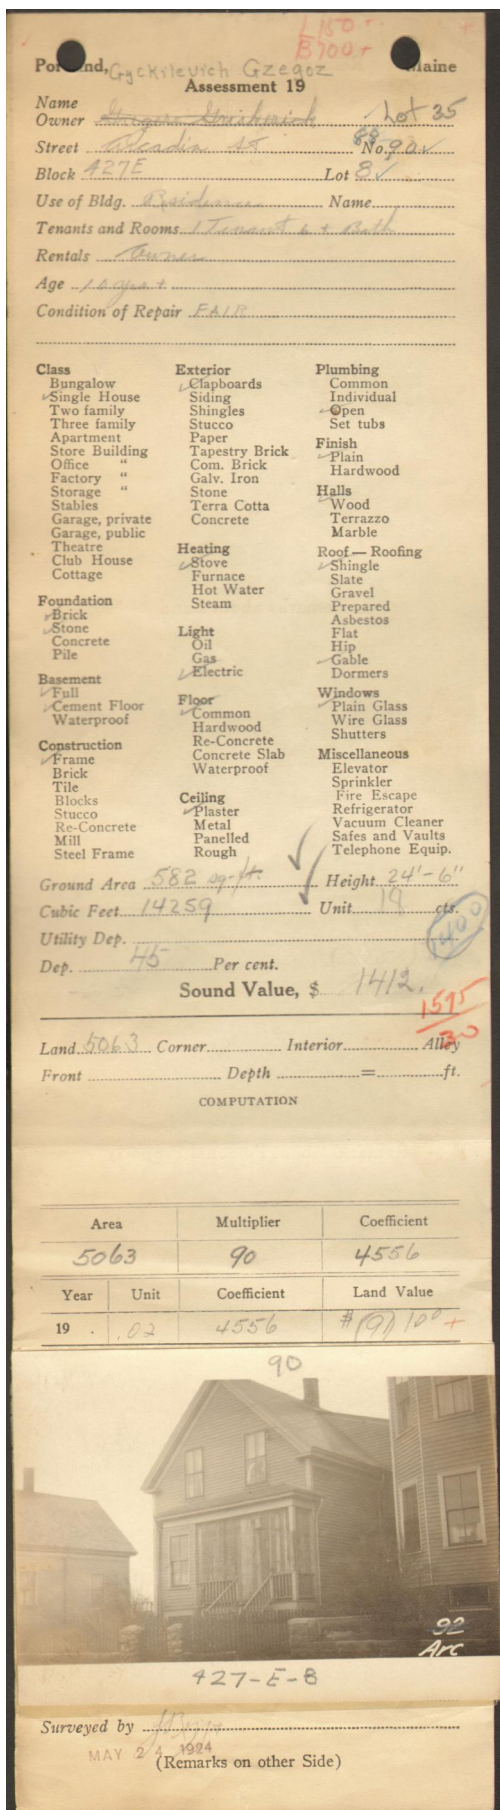 L 150 +
B 700 +
Portland, Gyckilevich Gzegoz Maine
Assessment 19
Name
Owner Lot 35
Street Arcadia St 88 No. 90
Block 427E Lot 8
Use of Bldg. Residence Name
Tenants and Rooms 1 Tenant 6 + Bath
Rentals Owner
Age 10 yrs +
Condition of Repair FAIR
Class
Bungalow
Single House
Two family
Three family
Apartment
Store Building
Office "
Factory "
Storage "
Stables
Garage, private
Garage, public
Theatre
Club House
Cottage
Foundation
Brick
Stone
Concrete
Pile
Basement
Full
Cement Floor
Waterproof
Construction
Frame
Brick
Tile
Blocks
Stucco
Re-Concrete
Mill
Steel Frame
Exterior
Clapboards
Siding
Shingles
Stucco
Paper
Tapestry Brick
Com. Brick
Galv. Iron
Stone
Terra Cotta
Concrete
Heating
Stove
Furnace
Hot Water
Steam
Light
Oil
Gas
Electric
Floor
Common
Hardwood
Re-Concrete
Concrete Slab
Waterproof
Ceiling
Plaster
Metal
Panelled
Rough
Plumbing
Common
Individual
Open
Set tubs
Finish
Plain
Hardwood
Halls
Wood
Terrazzo
Marble
Roof — Roofing
Shingle
Slate
Gravel
Prepared
Asbestos
Flat
Hip
Gable
Dormers
Windows
Plain Glass
Wire Glass
Shutters
Miscellaneous
Elevator
Sprinkler
Fire Escape
Refrigerator
Vacuum Cleaner
Safes and Vaults
Telephone Equip.
Ground Area 582 sq-ft. Height 24'-6"
Cubic Feet 14259 Unit 18 cts.
1400
Utility Dep.
Dep. 45 Per cent.
Sound Value, $ 1412.
1595
30
Land 5063 Corner Interior Alley
Front Depth = ft.
COMPUTATION
Area Multiplier Coefficient
5063 90 4556
Year Unit Coefficient Land Value
19 .02 4556 $ (91) 100 +
90
92
Arc
427-E-8
Surveyed by
MAY 24 1924
(Remarks on other Side)